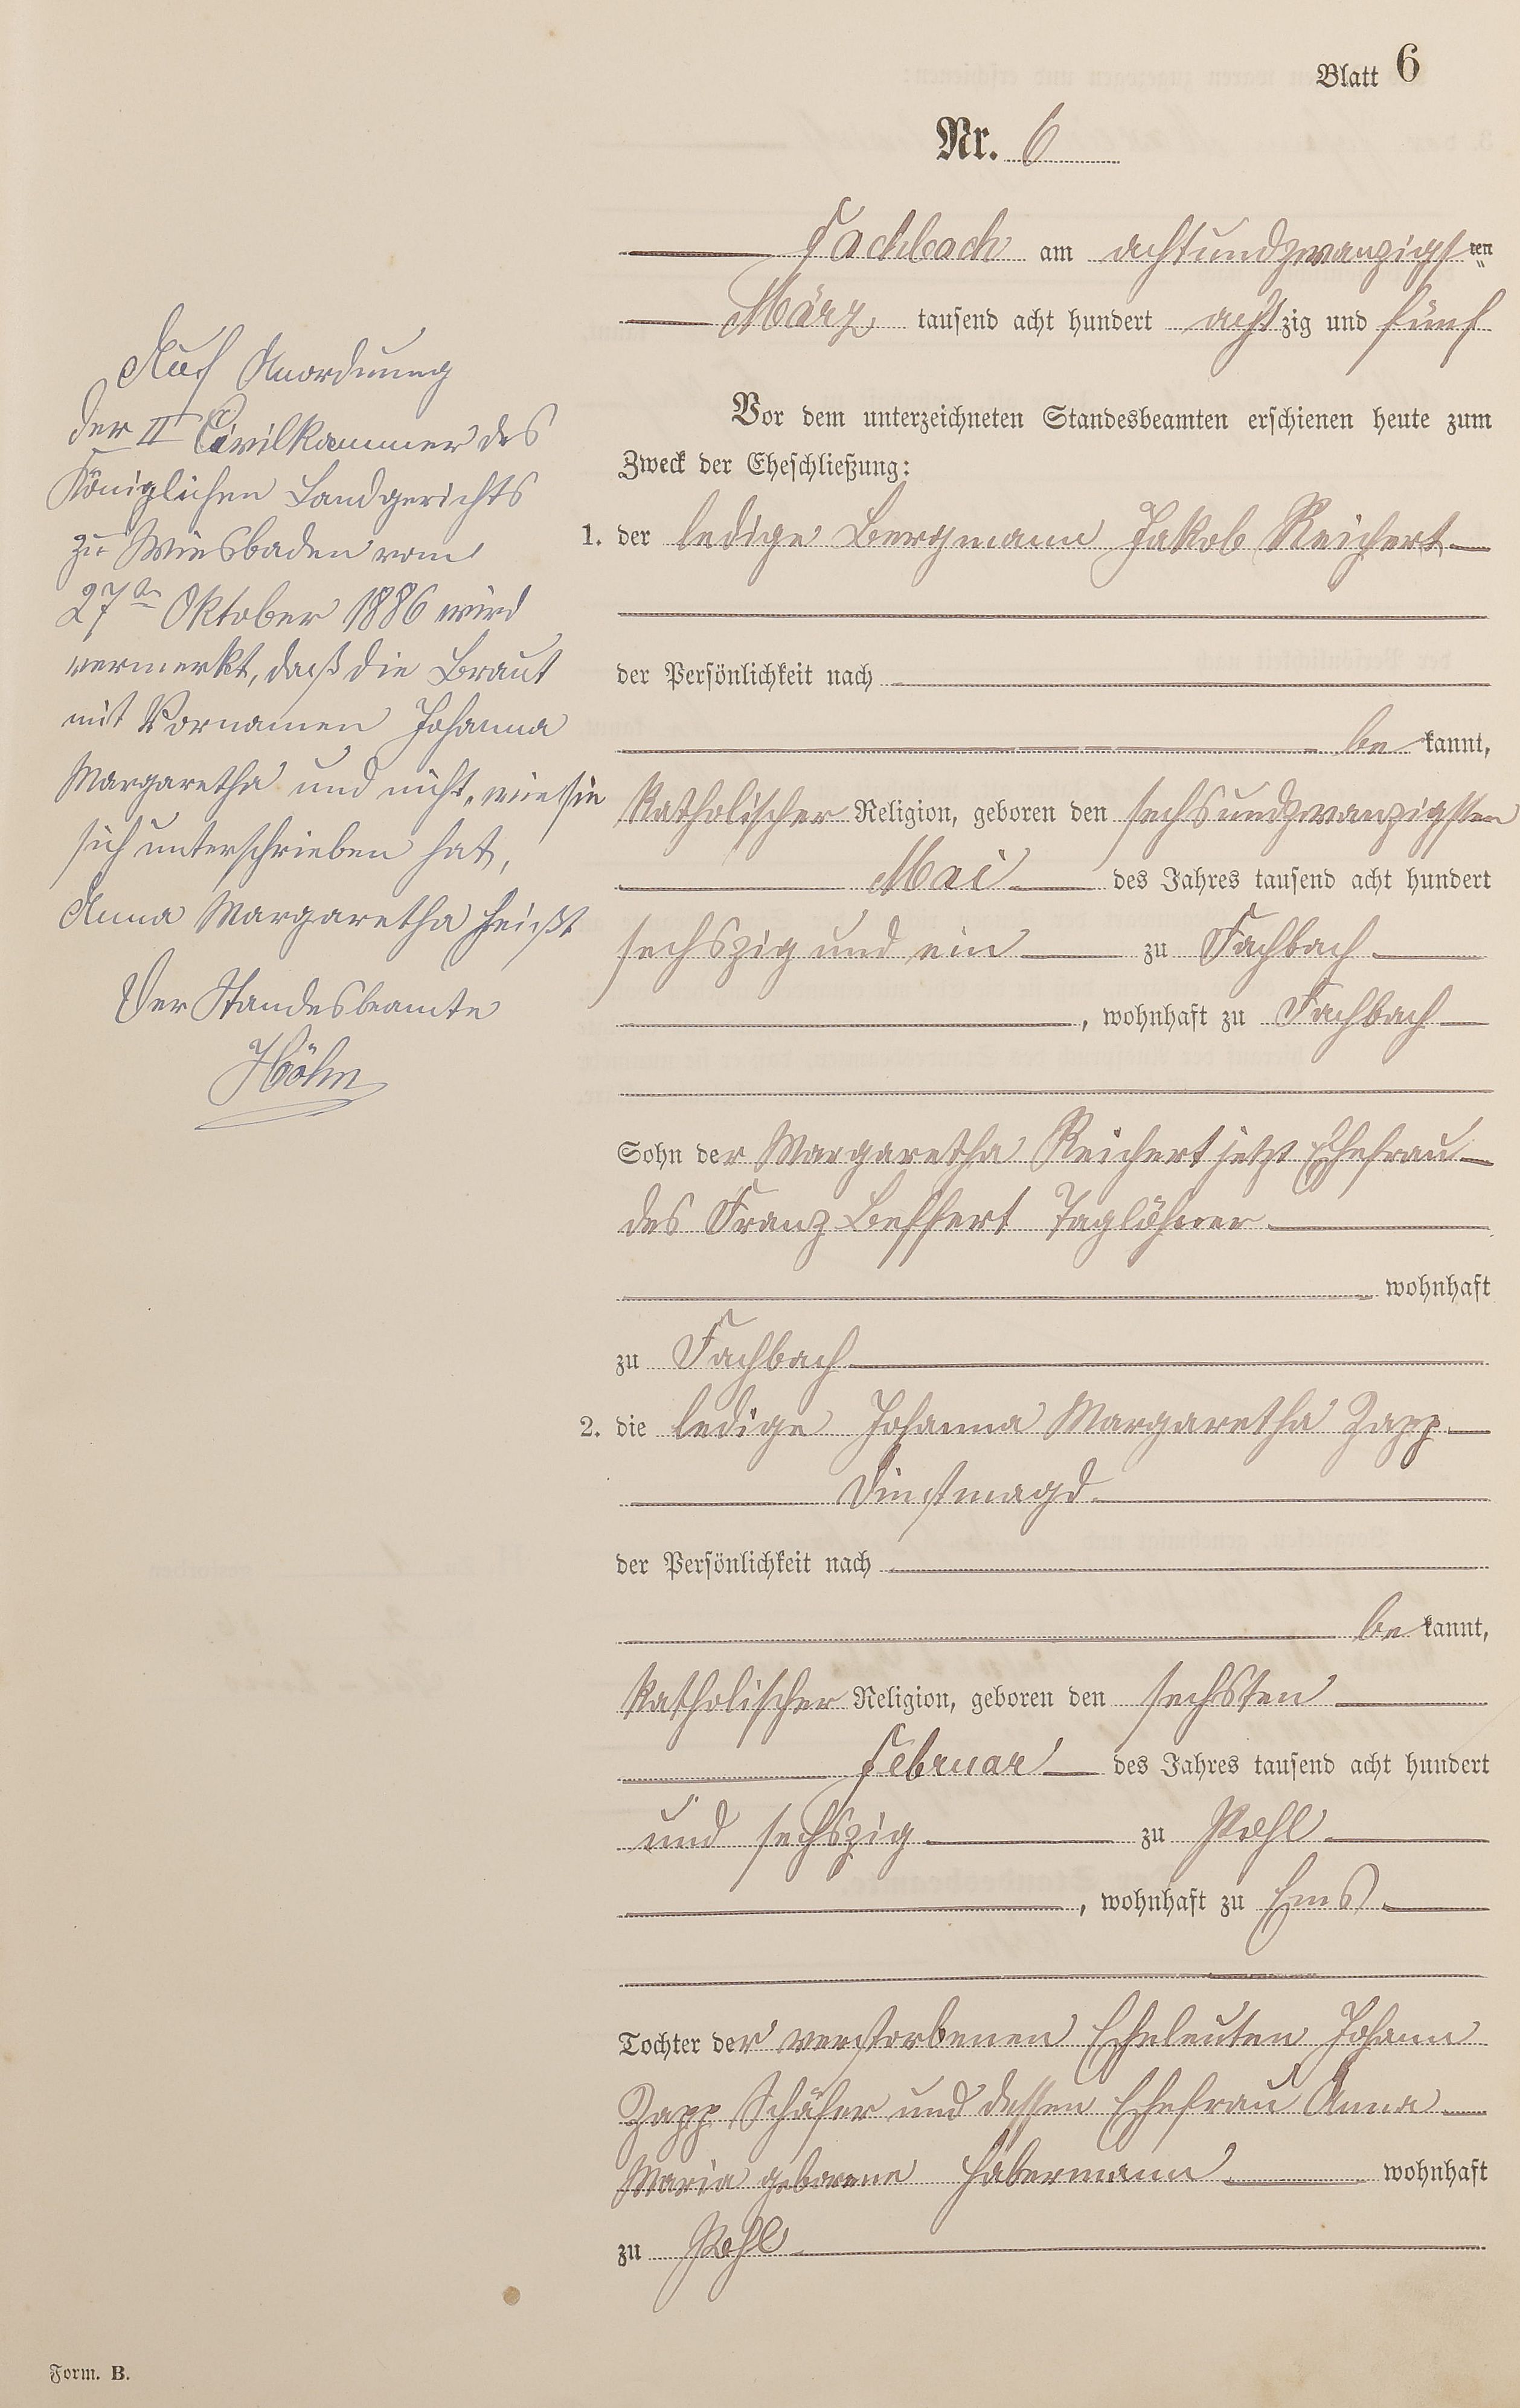 Blatt 6
Nr. 6
Fachbach am achtundzwanzigsten
März tausend acht hundert achtzig und fünf
Vor dem unterzeichneten Standesbeamten erschienen heute zum
Zweck der Eheschließung:
1. der ledige Bergmann Jakob Reichert
der Persönlichkeit nach
bekannt,
katholischer Religion, geboren den sechsundzwanzigsten
Mai des Jahres tausend acht hundert
sechszig und ein zu Fachbach
, wohnhaft zu Fachbach
Sohn der Margaretha Reichert jetzt Ehefrau
des Franz Beffert Taglöhner
wohnhaft
zu Fachbach
2. die ledige Johanna Margaretha Zapp
Dinstmagd
der Persönlichkeit nach
bekannt,
katholischer Religion, geboren den sechsten
Februar des Jahres tausend acht hundert
und sechszig zu Pohl
, wohnhaft zu Ems
Tochter der verstorbenen Eheleuten Johann
Zapp Schäfer und dessen Ehefrau Anna
Maria geborene Habermann wohnhaft
zu Pohl
Auf Anordnung
der II Civilkammer des
Königlichen Landgerichts
zu Wiesbaden vom
27ten Oktober 1886 wird
vermerkt, daß die Braut
mit Vornamen Johanna
Margaretha und nicht, wie sie
sich unterschrieben hat,
Anna Margaretha heißt
Der Standesbeamte
Höhn
Form. B.